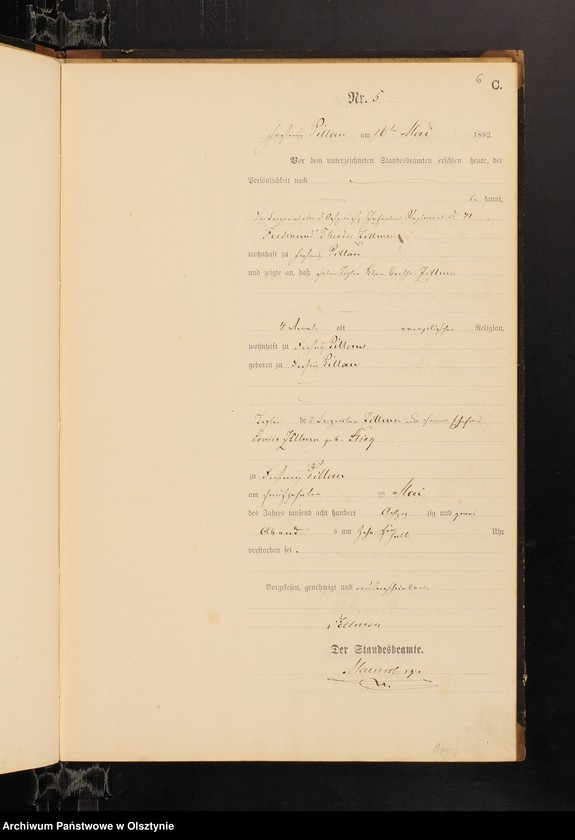 6
C.
Nr. 5
Festung Pillau am 16ten Mai 1882.
Vor dem unterzeichneten Standesbeamten erschien heute, der
Persönlichkeit nach
be kannt,
Regiments No
Ferdinand Theodor Zillmann
wohnhaft zu Festung Pillau
und zeigte an, daß seine Tochter Bertha Zillmann
4 Monate alt evangelischer Religion,
wohnhaft zu Festung Pillau
geboren zu Festung Pillau
Tochter des Sergeanten Zillmann und seiner Ehefrau
Louise Zillmann geb.
zu Festung Pillau
am fünfzehnten Mai
des Jahres tausend acht hundert achtzig und zwei
Abends um zehn ein halb Uhr
verstorben sei.
Vorgelesen, genehmigt und unterschrieben.
Zillmann
Der Standesbeamte.
Archiwum Państwowe w Olsztynie